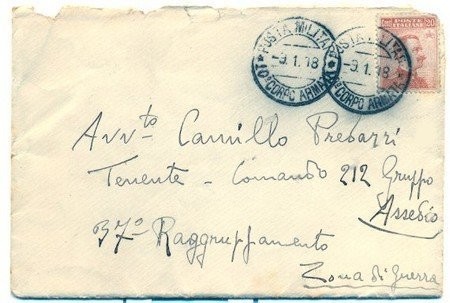 POSTA MILITARE
-9.1.18
10° CORPO ARMATA
POSTA MILITARE
-9.1.18
10° CORPO ARMATA
POSTE ITALIANE
20
Avv.to Camillo Prebazzi
Tenente - Comando 212 Gruppo
Assedio
37° Raggruppamento
Zona di Guerra